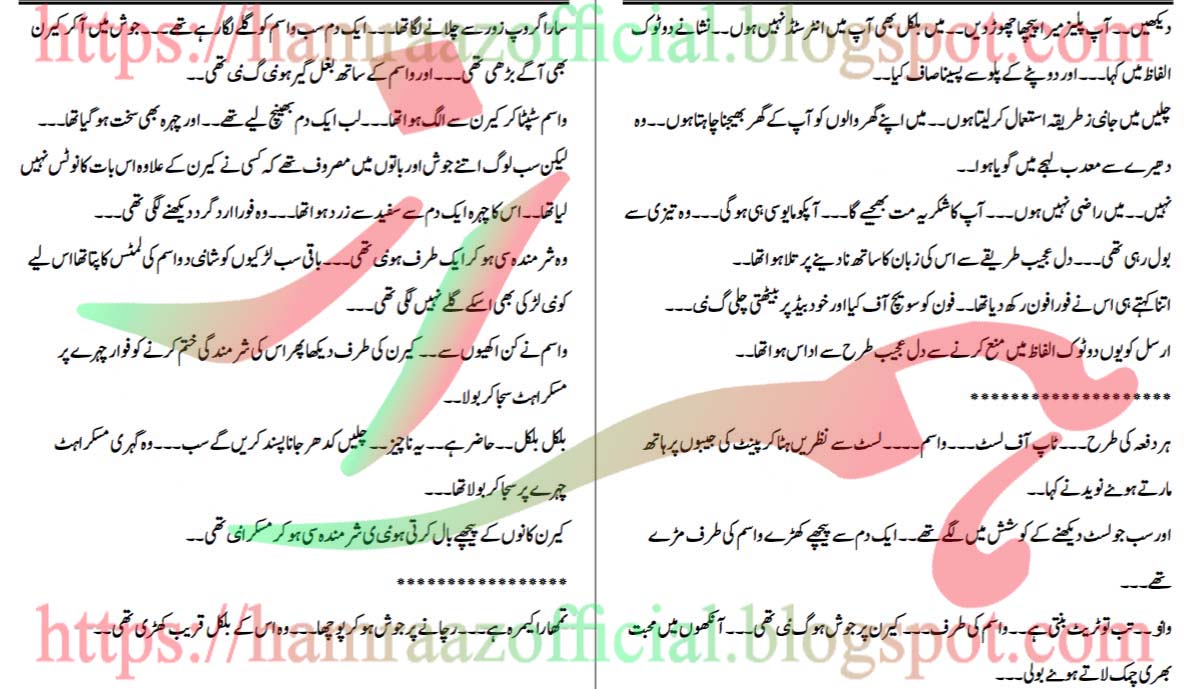 https://hamraazofficial.blogspot.com
دیکھیں۔۔ آپ پلیز میرا پیچھا چھوڑ دیں۔۔ میں بلکل بھی آپ میں انٹرسٹڈ نہیں ہوں۔۔ نشانے دو ٹوک
الفاظ میں کہا۔۔۔ اور دوپٹے کے پلو سے پسینا صاف کیا۔۔
چلیں میں جاہی ز طریقہ استعمال کر لیتا ہوں۔۔ میں اپنے گھر والوں کو آپ کے گھر بھیجنا چاہتا ہوں۔۔ وہ
دھیرے سے معدب لہجے میں گویا ہوا۔۔
نہیں۔۔ میں راضی نہیں ہوں۔۔۔ آپ کا شکریہ مت بھیجیے گا۔۔۔ آپکو مایوسی ہی ہوگی۔۔۔ وہ تیزی سے
بول رہی تھی۔۔۔ دل عجیب طریقے سے اس کی زبان کا ساتھ نا دینے پر تلا ہوا تھا۔۔
اتنا کہتے ہی اس نے فورا فون رکھ دیا تھا۔۔ فون کو سویچ آف کیا اور خود بیڈ پر بیٹھتی چلی گی ی۔۔۔
ارسل کو یوں دو ٹوک الفاظ میں منع کرنے سے دل عجیب طرح سے اداس ہوا تھا۔۔
********************
ہر دفعہ کی طرح۔۔۔ ٹاپ آف لسٹ۔۔۔ واسم۔۔۔۔ لسٹ سے نظریں ہٹا کر پینٹ کی جیبوں پر ہاتھ
مارتے ہوئے نوید نے کہا۔۔
اور سب جو لسٹ دیکھنے کے کوشش میں لگے تھے۔۔ ایک دم سے پیچھے کھڑے واسم کی طرف مڑے
تھے۔۔۔
واو۔۔ تب تو ٹریٹ بنتی ہے۔۔ واسم کی طرف۔۔۔ کیرن پر جوش ہو گی ی تھی۔۔۔ آنکھوں میں محبت
بھری چمک لاتے ہوئے بولی۔۔۔
سارا گروپ زور سے چلانے لگا تھا۔۔۔ ایک دم سب واسم کو گلے لگا رہے تھے۔۔۔ جوش میں آ کر کیرن
بھی آگے بڑھی تھی۔۔۔ اور واسم کے ساتھ بغل گیر ہوئی گ ی تھی۔۔
واسم سٹپٹا کر کیرن سے الگ ہوا تھا۔۔۔ لب ایک دم بھینچ لیے تھے۔۔ اور چہرہ بھی سخت ہو گیا تھا۔۔۔
لیکن سب لوگ اتنے جوش اور باتوں میں مصروف تھے کہ کسی نے کیرن کے علاوہ اس بات کا نوٹس نہیں
لیا تھا۔۔ اس کا چہرہ ایک دم سے سفید سے زرد ہوا تھا۔۔۔ وہ فورا ارد گرد دیکھنے لگی تھی۔۔
وہ شرمندہ سی ہو کر ایک طرف ہوئی تھی۔۔۔ باقی سب لڑکیوں کو شای د واسم کی لمٹس کا پتا تھا اس لیے
کوئی لڑکی بھی اسکے گلے نہیں لگی تھی۔۔۔
واسم نے کن اکھیوں سے۔۔ کیرن کی طرف دیکھا پھر اس کی شرمندگی ختم کرنے کو فوار چہرے پر
مسکراہٹ سجا کر بولا۔۔
بلکل بلکل۔۔ حاضر ہے۔۔ یہ نا چیز۔۔ چلیں کدھر جانا پسند کریں گے سب۔۔۔ وہ گہری مسکراہٹ
چہرے پر سجا کر بولا تھا۔۔۔
کیرن کانوں کے پیچھے بال کرتی ہوئی ی شرمندہ سی ہو کر مسکرائی تھی۔۔
*****************
تمھارا کیمرہ ہے۔۔۔ رچانے پر جوش ہو کر پوچھا۔۔۔ وہ اس کے بلکل قریب کھڑی تھی۔۔
https://hamraazofficial.blogspot.com